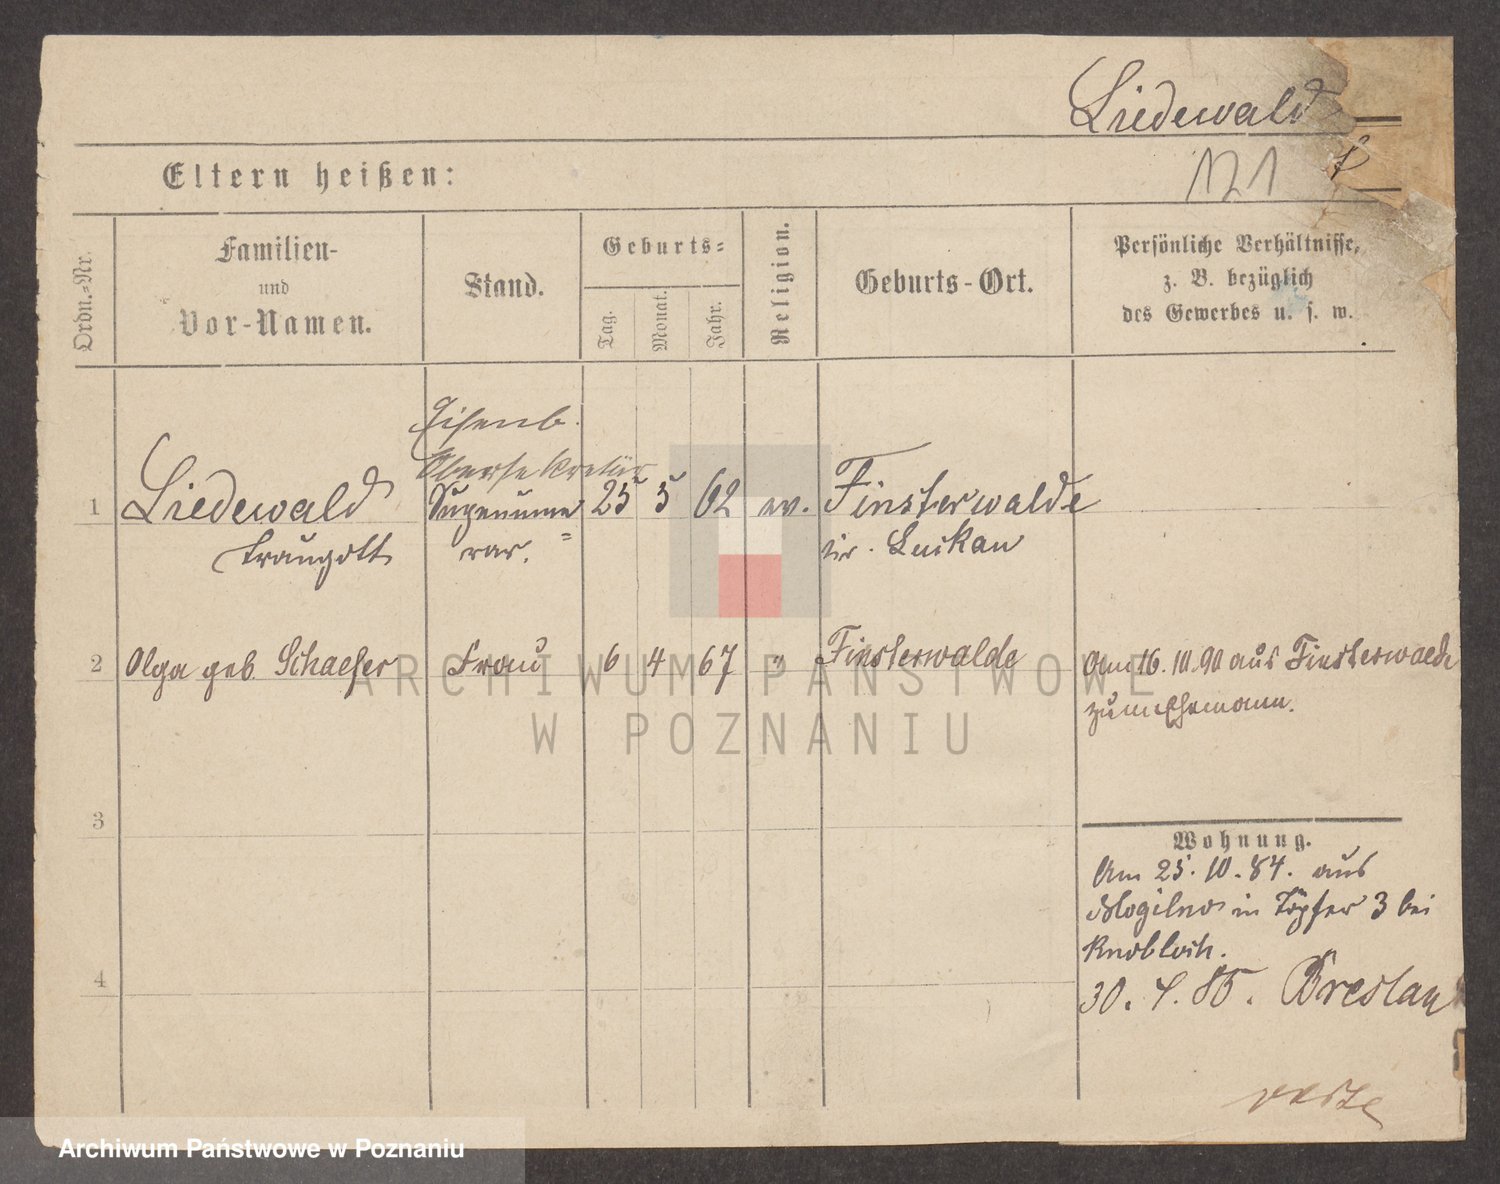 Liedewald
121
Eltern heißen:
Ordn.-Nr.
Familien-
und
Vor-Namen.
Stand.
Geburts-
Tag.
Monat.
Jahr.
Religion.
Geburts-Ort.
Persönliche Verhältnisse,
z. B. bezüglich
des Gewerbes u. s. w.
Eisenb.
Obersekretär
1 Liedewald Supernume 25 5 62 ev. Finsterwalde
Traugott rar. Kr. Luckau
2 Olga geb. Schaefer Frau 6 4 67 " Finsterwalde Am 16.10.90 aus Finsterwalde
zum Ehemann.
3
Wohnung.
Am 25.10.84. aus
Mogilno in Töpfer 3 bei
Knobloch.
4
30. 4. 85. Breslau
ARCHIWUM PAŃSTWOWE
W POZNANIU
Archiwum Państwowe w Poznaniu